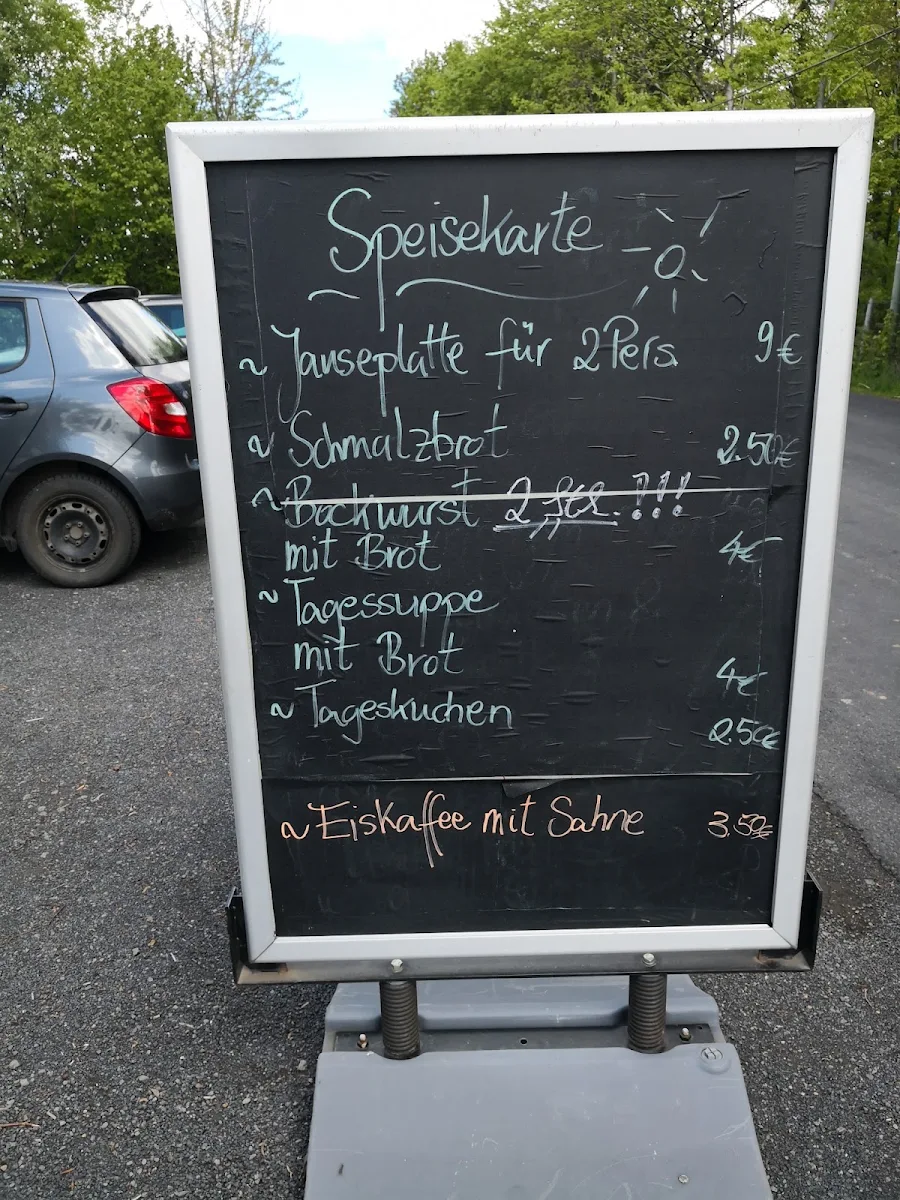 Speisekarte
~ Janseplatte für 2 Pers. 9€
~ Schmalzbrot 2.50€
~ Bockwurst 2 Stk. !!!
mit Brot 4€
~ Tagessuppe
mit Brot 4€
~ Tageskuchen 2.50€
~ Eiskaffee mit Sahne 3.50€